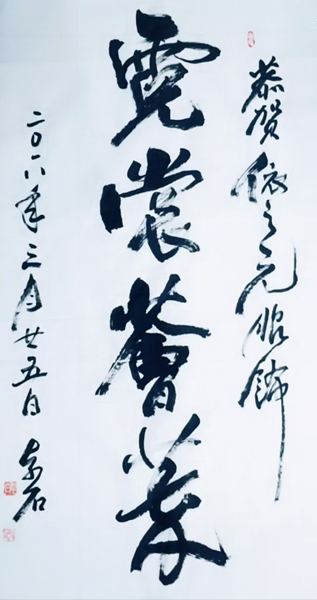 恭贺依之元服饰
霓裳薈萃
二〇一八年三月廿五日